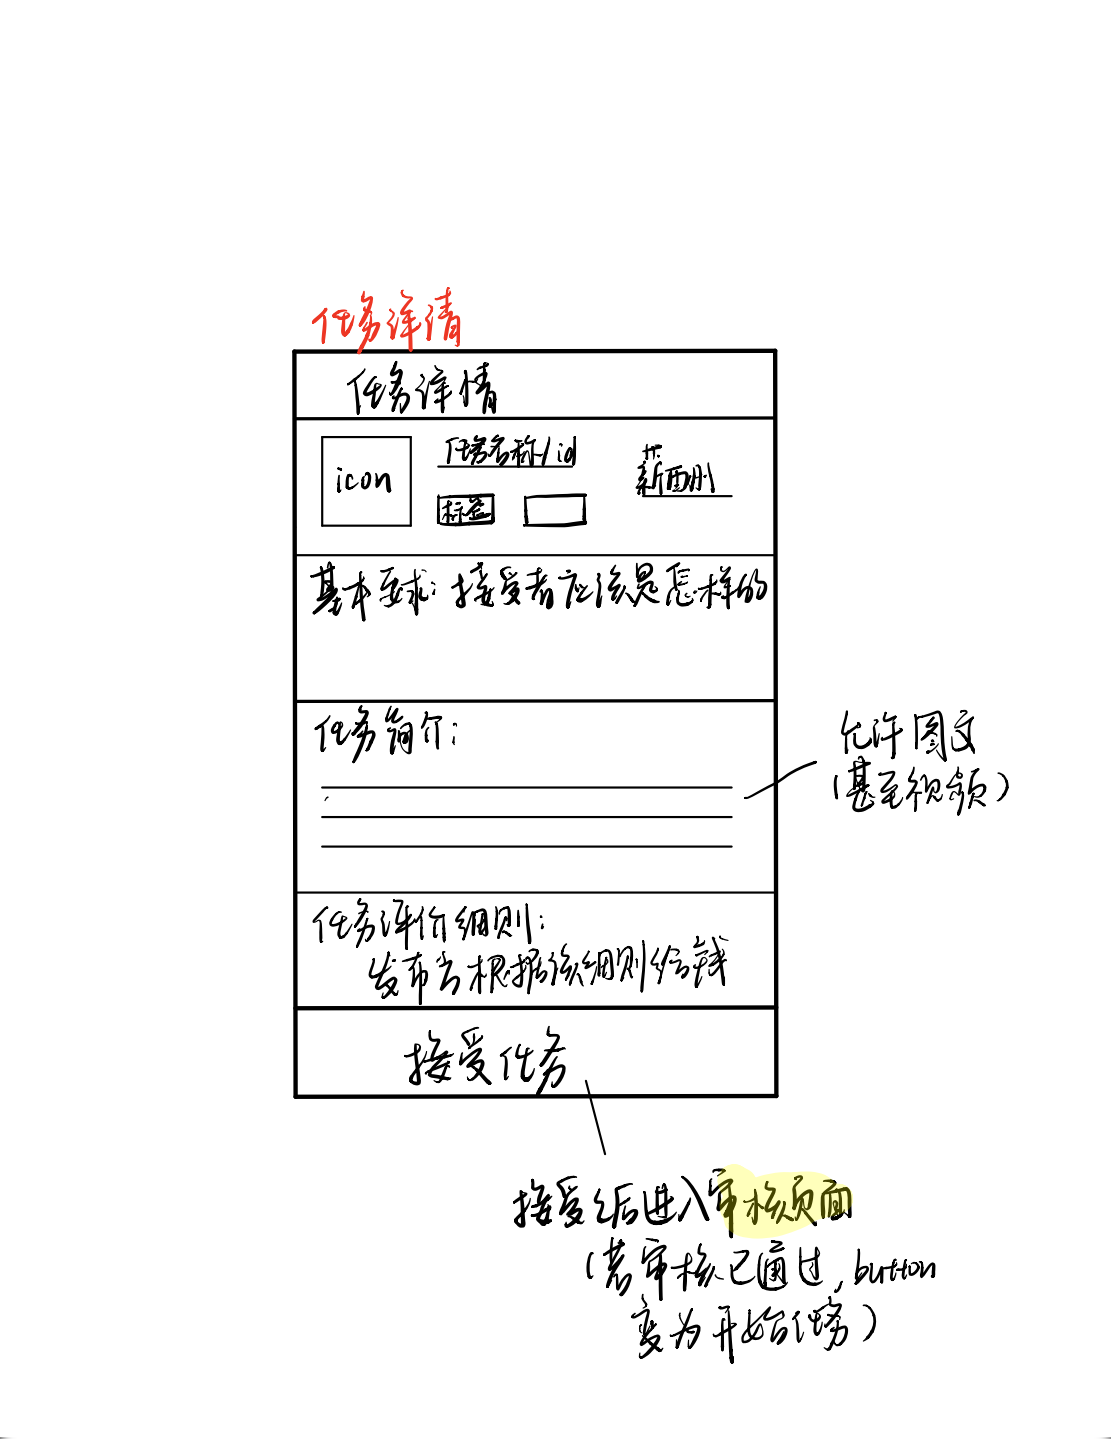 任务详情
任务详情
icon
任务名称/id
薪酬
标签
基本要求：接受者应该是怎样的
任务简介：
允许图文
（甚至视频）
任务评价细则：
发布者根据该细则给钱
接受任务
接受后进入审核页面
（若审核已通过，button
变为开始任务）